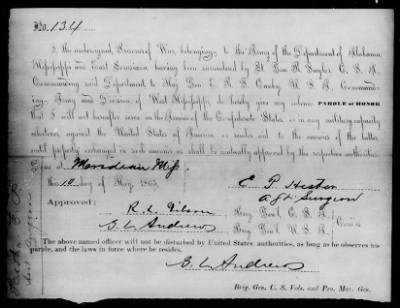 No. 134
I the undersigned, Prisoner of War, belonging to the Army of the Department of Alabama,
Mississippi and East Louisiana, having been surrendered by Lt. Gen. R. Taylor C. S. A.
Commanding said Department to Maj. Gen. E. R. S. Canby U. S. A. Command-
ing Army and Division of West Mississippi, do hereby give my solemn PAROLE of HONOR
that I will not hereafter serve in the Armies of the Confederate States or in any military capacity
whatever against the United States of America, or render aid to the enemies of the latter
until properly exchanged in such manner as shall be mutually approved by the respective authorities
Done at Meridian Miss.
this 10 day of May 1865.
E. P. Hester
Asst Surgeon
Approved:
R. L. Gibson Brig Genl C. S. A.
E. L. Andrews Brig Genl U. S. V.
The above named officer will not be disturbed by United States authorities, as long as he observes his
parole, and the laws in force where he resides.
E. L. Andrews
Brig. Gen. U. S. Vols. and Pro. Mar. Gen.